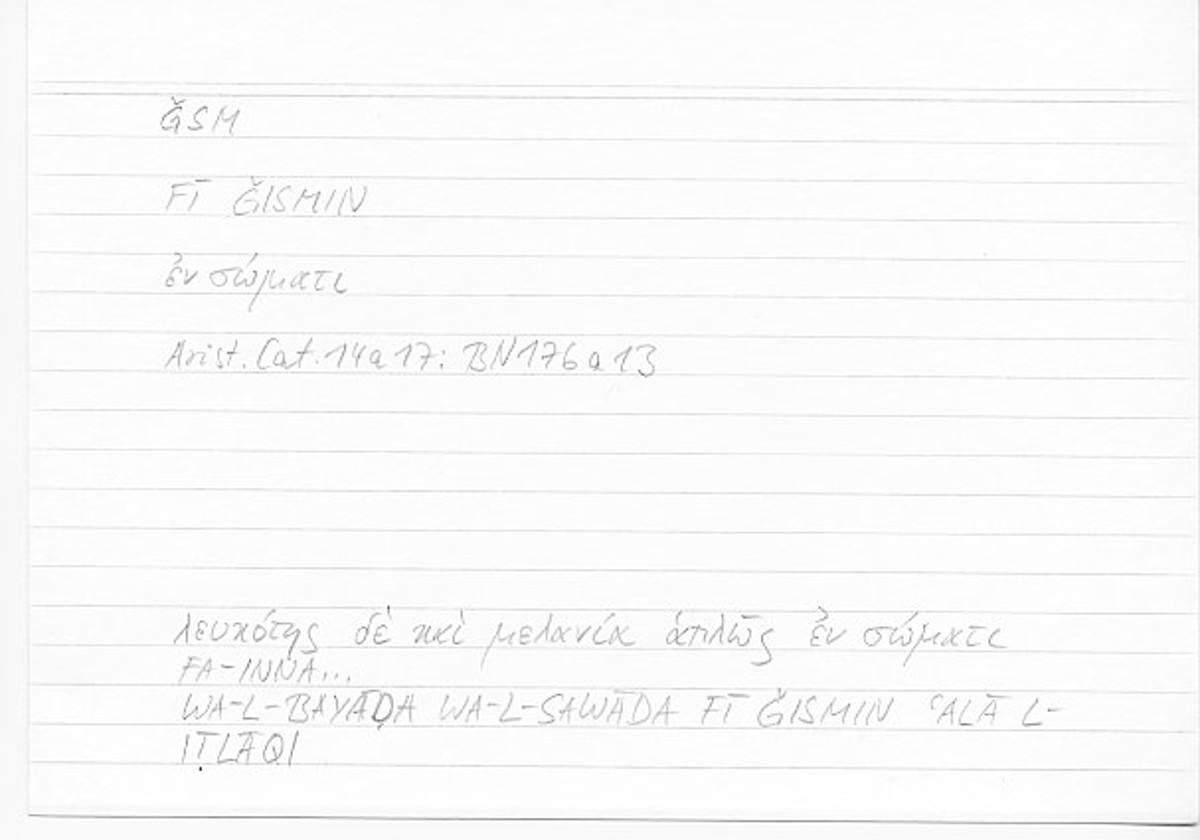 ǦSM
FĪ ǦISMIN
ἐν σώματι
Arist. Cat. 14a17: BN176a13
λευκότης δὲ καὶ μελανία ἁπλῶς ἐν σώματι
FA-INNA...
WA-L-BAYĀḌA WA-L-SAWĀDA FĪ ǦISMIN ʿALĀ L-
IṬLĀQI